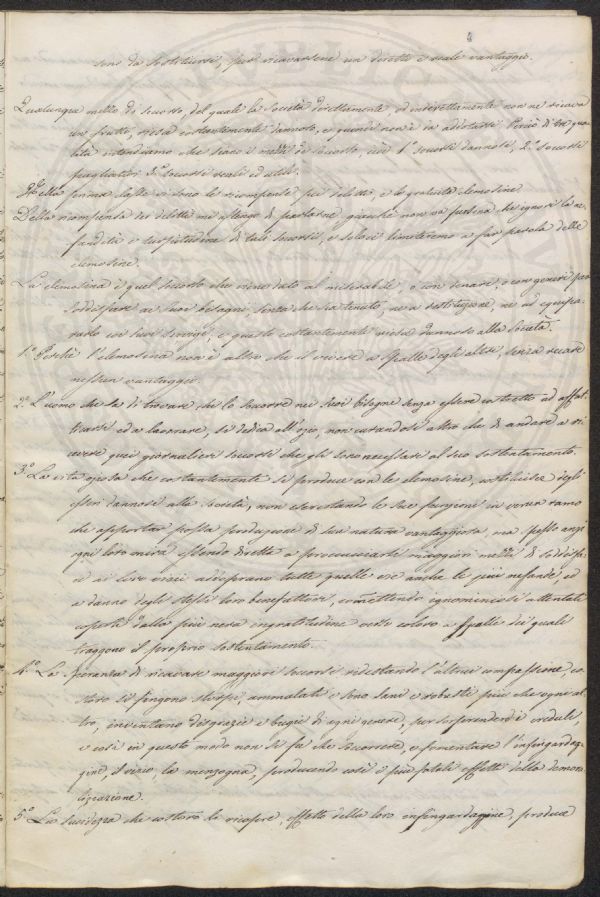 sono da sostituirsi, per ricavarsene un diretto e reale vantaggio.
Qualunque mezzo di soccorso, del quale la Società direttamente, od indirettamente non ne ricava
un frutto, riesce costantemente dannoso, e quindi non è da adottarsi. Perciò di tre qua-
lità intendiamo che siano i mezzi di soccorso, cioè 1.° soccorsi dannosi, 2.° soccorsi
3.° soccorsi reali ed utili.
Nella prima classe vi sono le ricompense pei delitti, e le gratuite elemosine.
Della ricompensa dei delitti mi astengo di parlarne, giacchè non vi è persona che ignori la ne-
fandità e turpitudine di tali soccorsi, e solo ci limiteremo a far parola delle
elemosine.
La elemosina è quel soccorso che viene dato al miserabile, o con denaro, o con generi per
soddisfare ai suoi bisogni, senza che sia tenuto, nè a restituzione, nè ad
coi suoi servigj, e questo costantemente riesce dannoso alla Società.
1.° Perchè l'elemosina non è altro che il vivere a spalle degli altri, senza recare
nessun vantaggio.
2.° L'uomo che sa di trovare chi lo soccorre nei suoi bisogni senza essere costretto ad affat-
ticarsi ed a lavorare, si dedica all'ozio, non curandosi altro che di andare a ri-
cevere quei giornalieri soccorsi che gli sono necessarj al suo sostentamento.
3.° La vita oziosa che costantemente si produce con le elemosine, costituisce degli
esseri dannosi alla società, non esercitando le sue funzioni in verun ramo
che apportar possa produzione di sua natura vantaggiosa, ma spesso anzi
ogni loro mira essendo diretta a procacciarsi maggiori mezzi di
ai loro vizj adoprano tutte quelle vie anche le più nefande, ed
a danno degli stessi loro benefattori, commettendo ignominiosi attentati
coperti dalla più nera ingratitudine verso coloro a spalle dei quali
traggono il proprio sostentamento.
4.° La speranza di ricavare maggiori soccorsi ridestando l'altrui compassione, co-
storo si fingono storpi, ammalati e sono sani e robusti più che ogni al-
tro, inventano disgrazie e bugie di ogni genere, per sorprendere i creduli,
e così in questo modo non si fa che soccorrere, e fomentare l'infingardag-
gine, il vizio, la menzogna, producendo così i più fatali effetti della demora-
lizzazione.
5.° La che costoro la ricopre, effetto della loro infingardaggine, produce